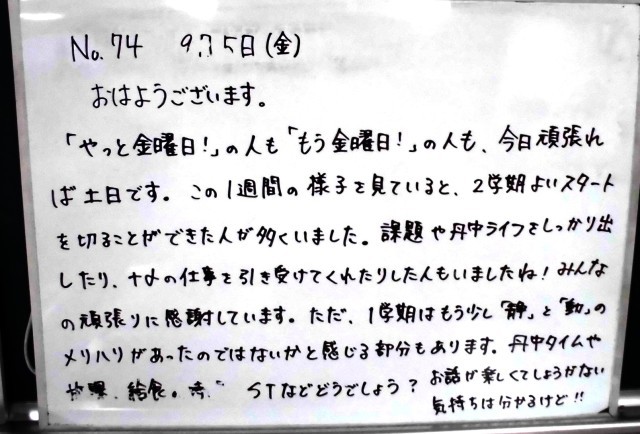 No.74 9月5日(金)
おはようございます。
「やっと金曜日!」の人も「もう金曜日!」の人も、今日頑張れ
ば土日です。この1週間の様子を見ていると、2学期よいスタート
を切ることができた人が多くいました。課題や丹中ライフをしっかり出
したり、+αの仕事を引き受けてくれたりした人もいましたね!みんな
の頑張りに感謝しています。ただ、1学期はもう少し「静」と「動」の
メリハリがあったのではないかと感じる部分もあります。丹中タイムや
給食、STなどどうでしょう?お話が楽しくてしょうがない
気持ちは分かるけど!!